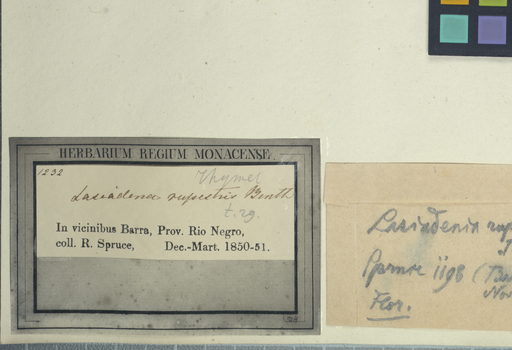 HERBARIUM REGIUM MONACENSE.
1232
Thymel
Lasiadenia rupestris Benth
t. sg.
In vicinibus Barra, Prov. Rio Negro,
coll. R. Spruce, Dec.-Mart. 1850-51.
Lasiadenia rup
Spruce 1198 (Ba
Nov
Flor.